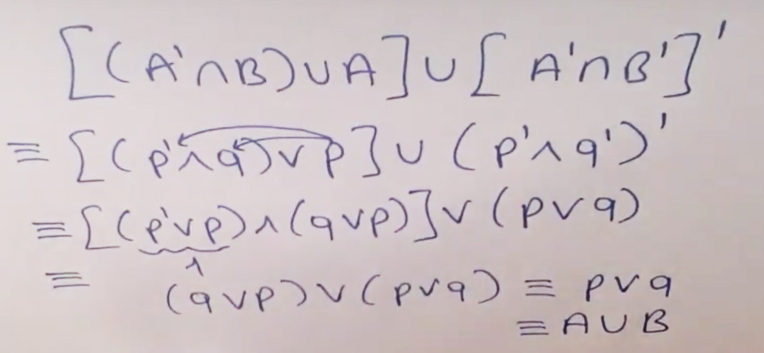 [(A'∩B)∪A]∪[A'∩B']'
≡[(p'∧q)∨p]∪(p'∧q')'
≡[(p'∨p)∧(q∨p)]∨(p∨q)
1
≡ (q∨p)∨(p∨q) ≡ p∨q
≡ A∪B